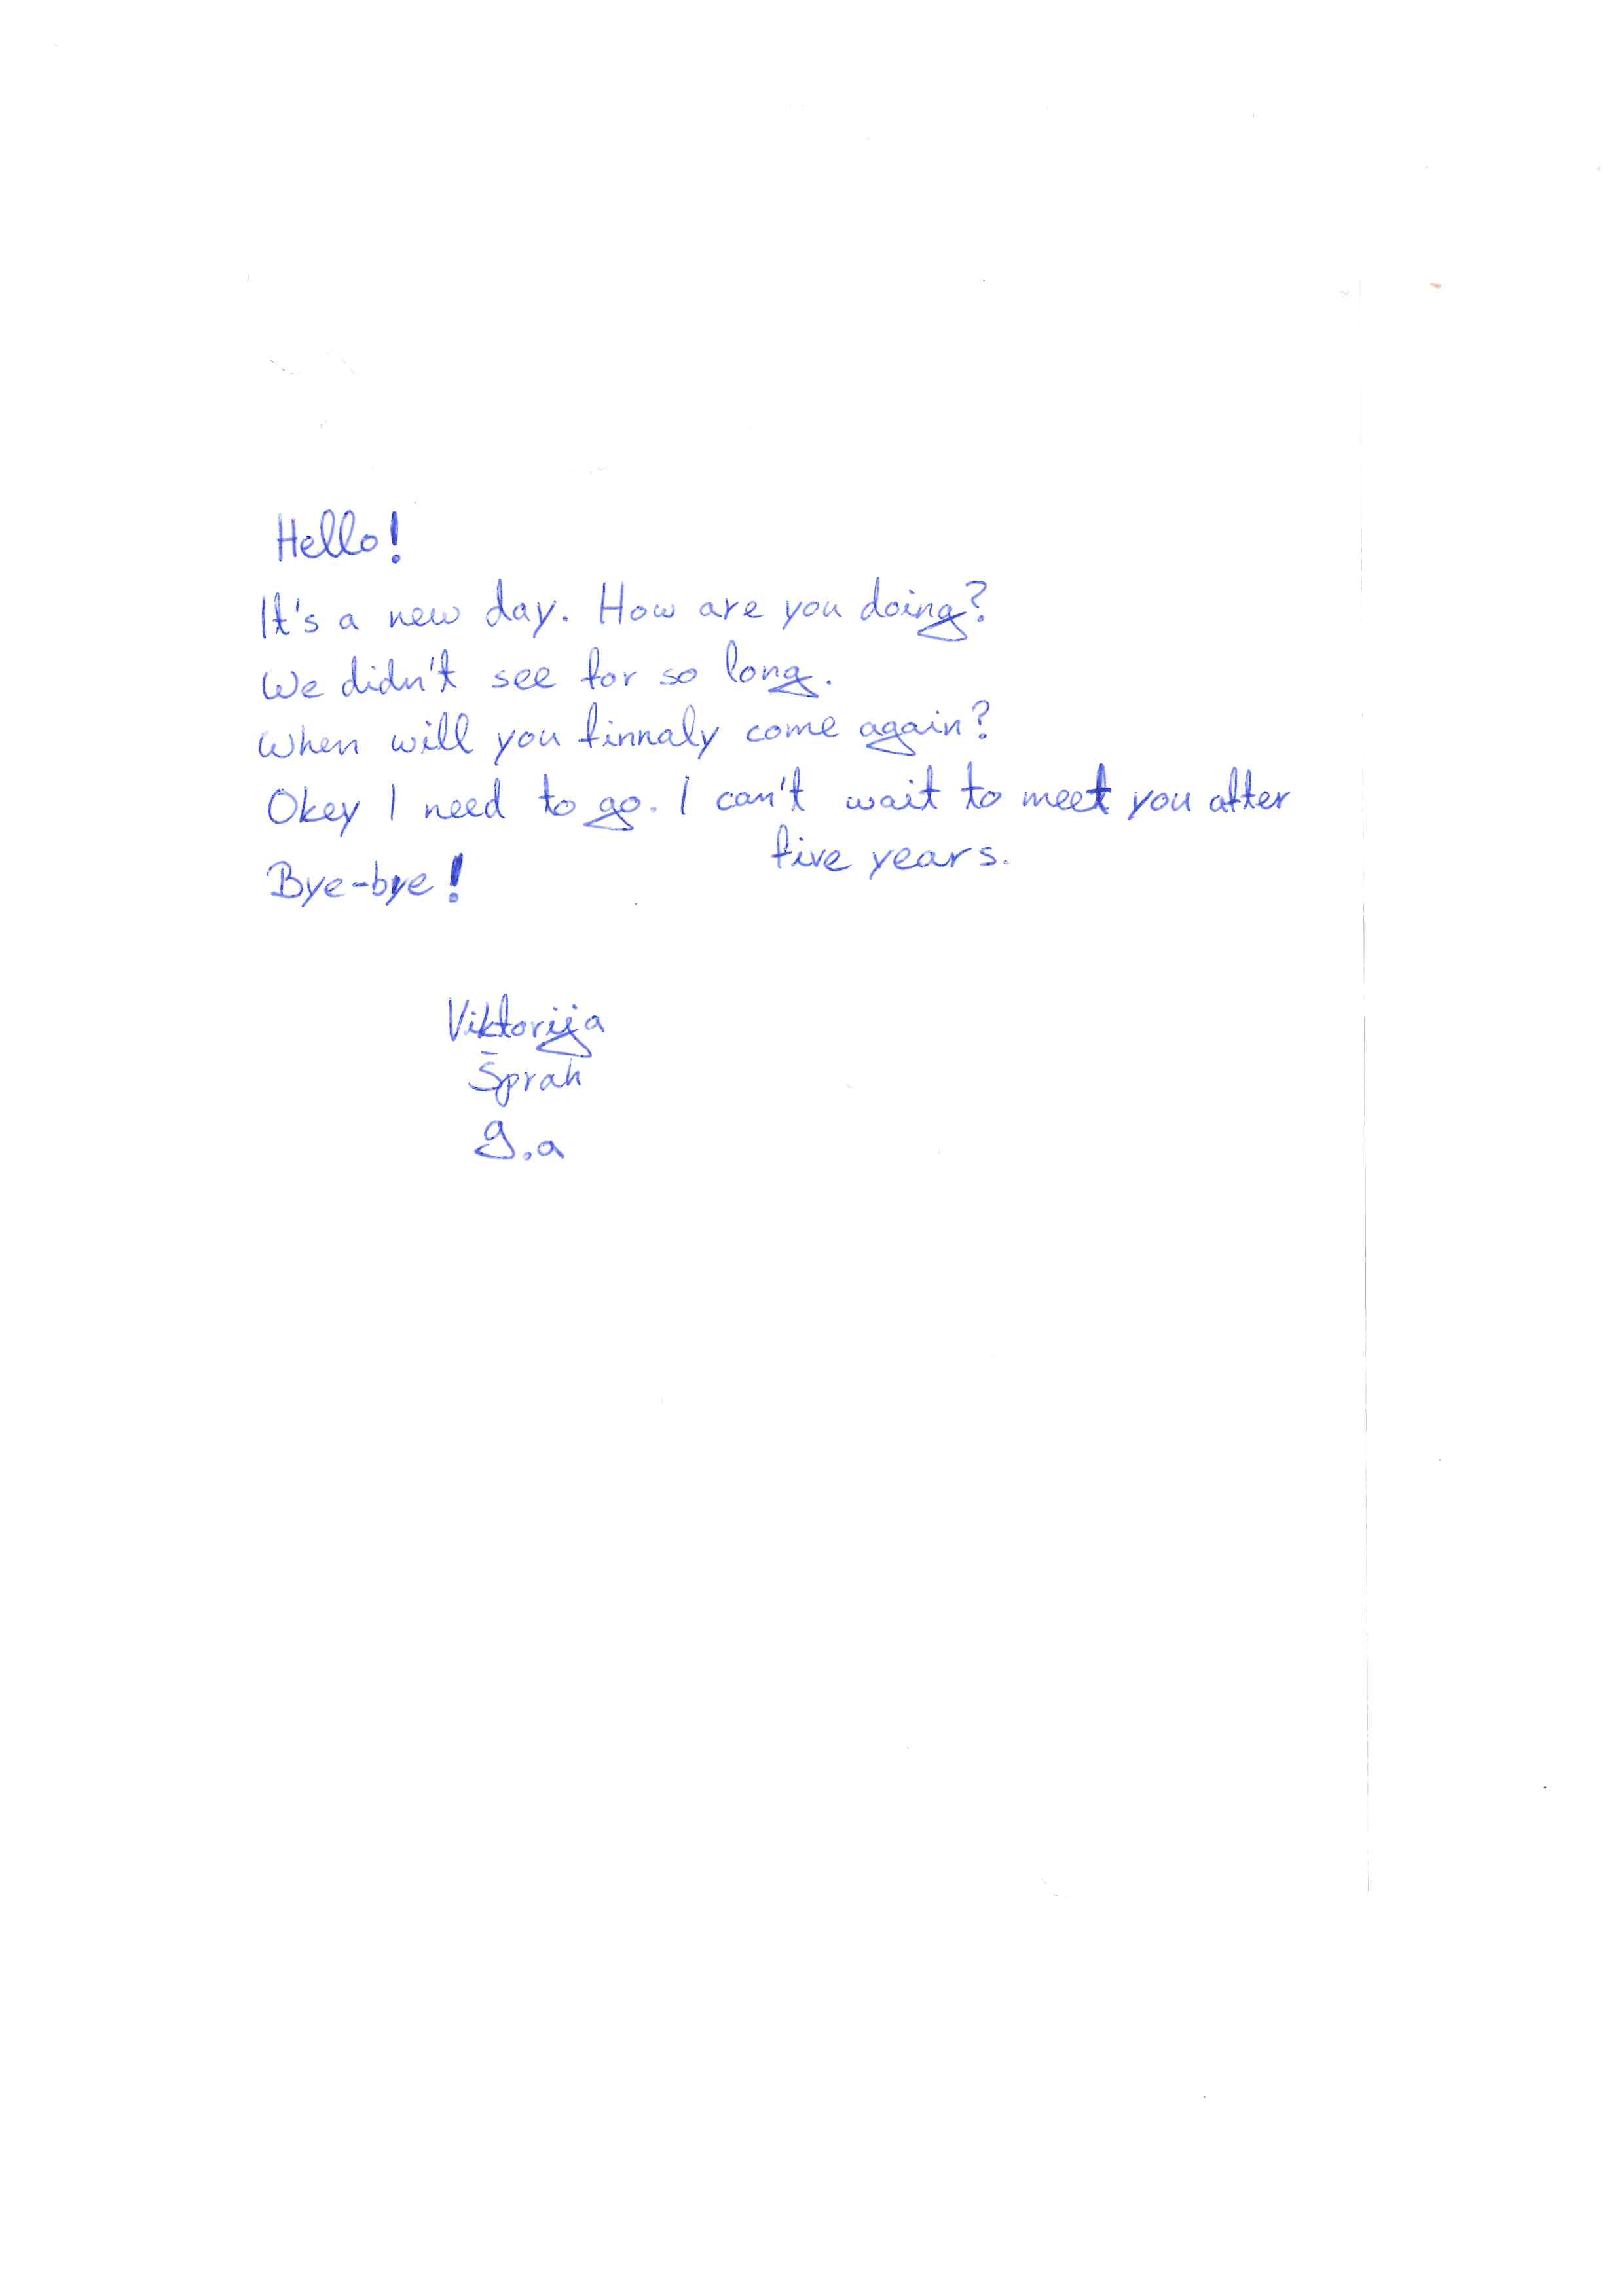 Hello!
It's a new day. How are you doing?
We didn't see for so long.
When will you finnaly come again?
Okey I need to go. I can't wait to meet you after
five years.
Bye-bye!
Viktorija
Šprah
9.a